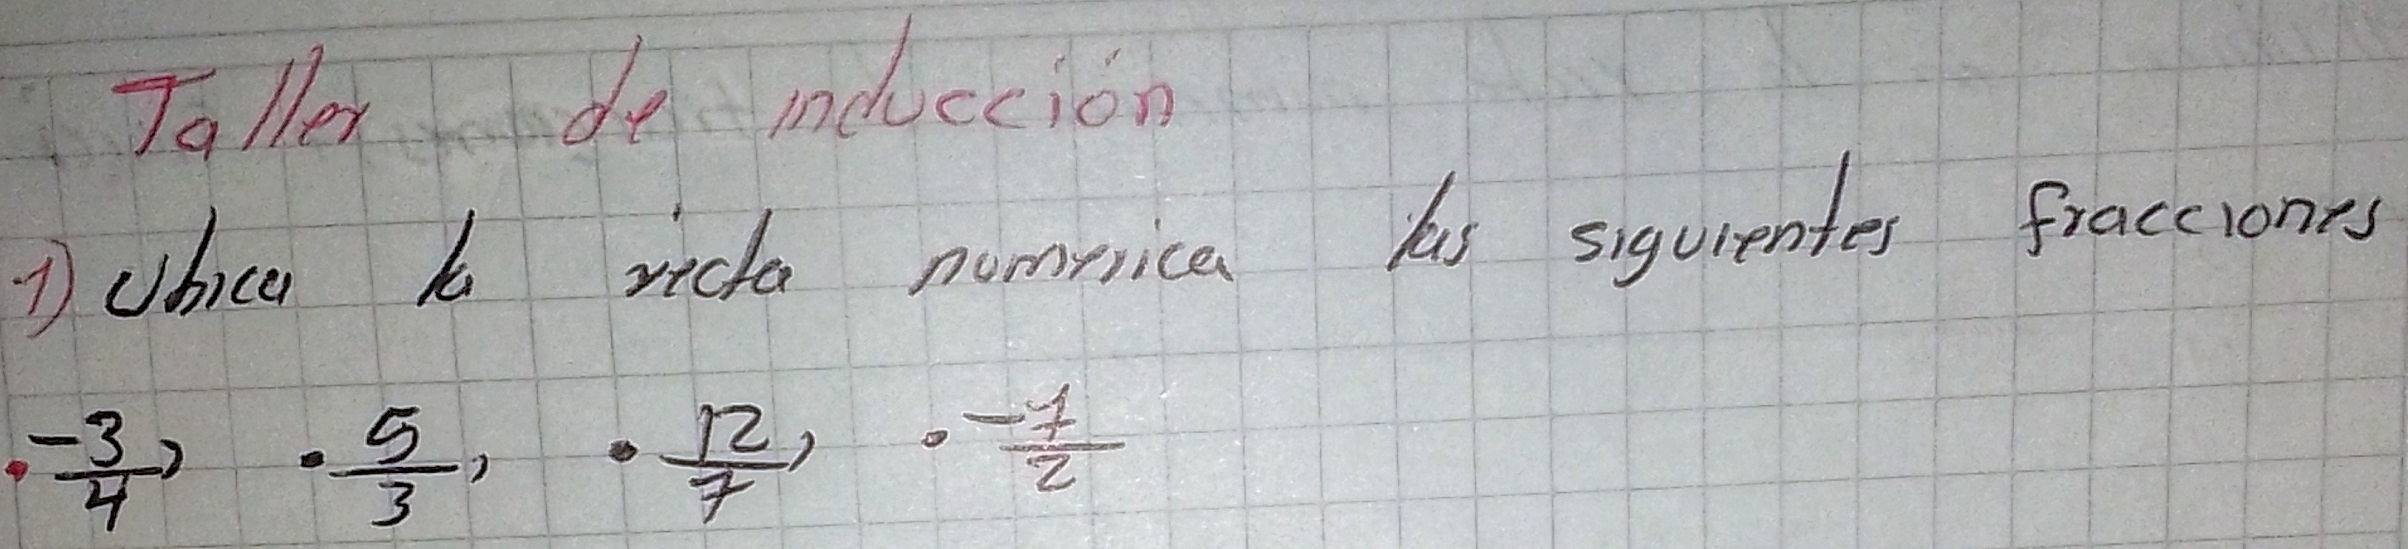 Taller de inducción
1) Ubica la recta numerica las siguientes fracciones
• -3/4, • 5/3, • 12/7, • -7/2